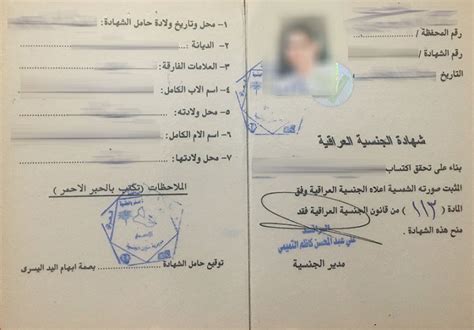 رقم المحفظة /
رقم الشهادة /
التاريخ
شهادة الجنسية العراقية
بناء على تحقق اكتساب
المثبت صورته الشمسية اعلاه الجنسية العراقية وفق
المادة ( ١١٣ ) من قانون الجنسية العراقية فقد
منح هذه الشهادة .
علي عبد المحسن كاظم التميمي
مدير الجنسية
١- محل وتاريخ ولادة حامل الشهادة:
٢- الديانة
٣- العلامات الفارقة:
٤- اسم الاب الكامل:
٥- محل ولادته:
٦- اسم الام الكامل:
٧- محل ولادتها:
الملاحظات ( تكتب بالحبر الاحمر )
توقيع حامل الشهادة بصمة ابهام اليد اليسرى